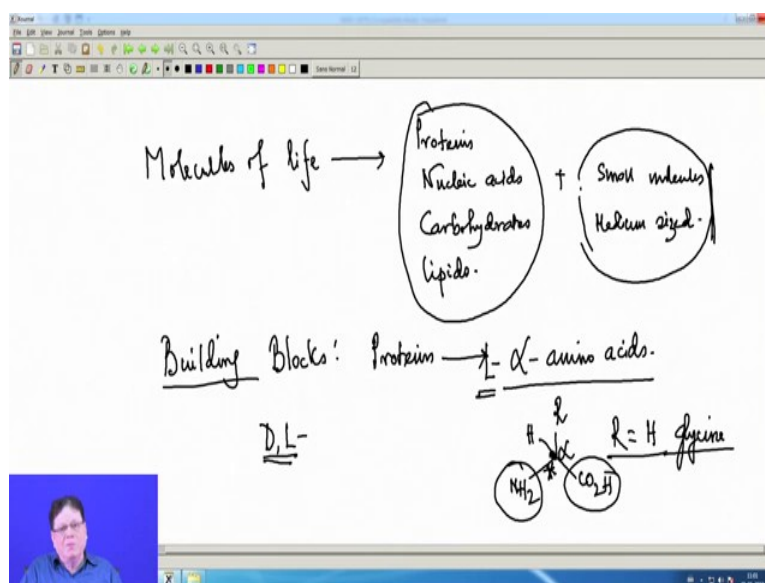 Journal
File Edit View Journal Tools Options Help
Sans Normal 12
Molecules of life → Proteins
Nucleic acids
Carbohydrates
lipids.
+ Small molecules
Medium sized.
Building Blocks: Proteins → L- α- amino acids.
D, L-
R
H α R = H glycine
* 
NH2 CO2H